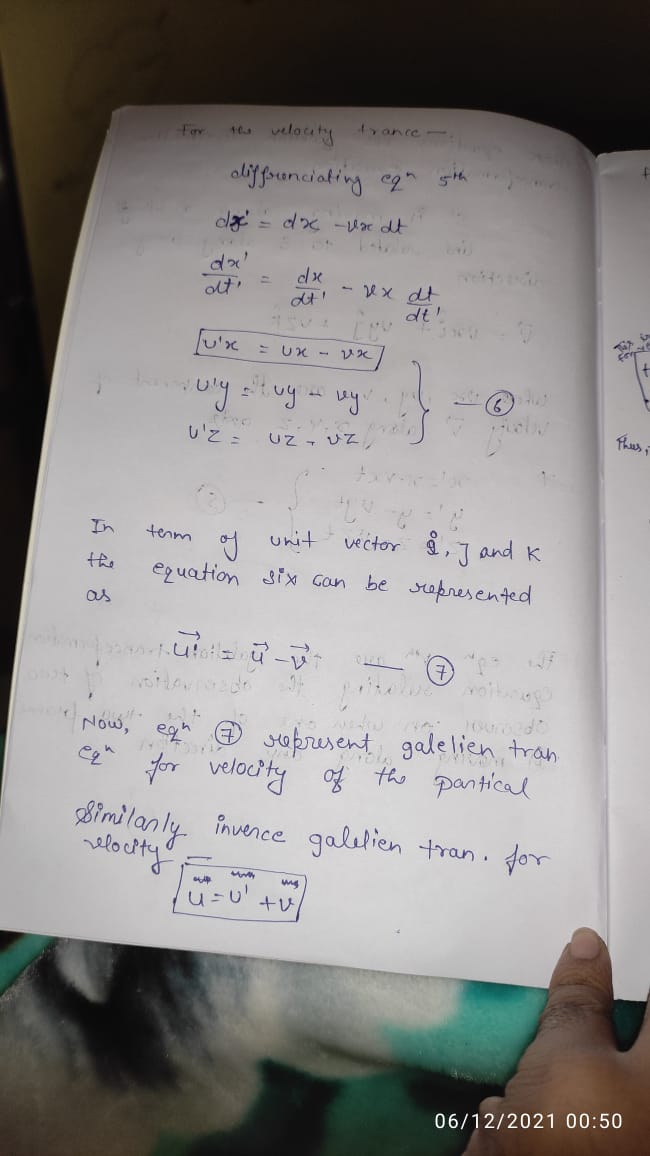 For the velocity trance -
diffrenciating eqⁿ 5th
dx' = dx - vx dt
dx'/dt' = dx/dt' - vx dt/dt'
u'x = ux - vx
u'y = uy - vy
u'z = uz - vz
} — ⑥
In term of unit vector i, J and K
the equation six can be represented
as
u⃗' = u⃗ - v⃗ — ⑦
Now, eqⁿ ⑦ represent galelien tran
eqⁿ for velocity of the partical
Similarly invence galelien tran. for
velocity —
u⃗ = u⃗' + v⃗
Thus,
06/12/2021 00:50